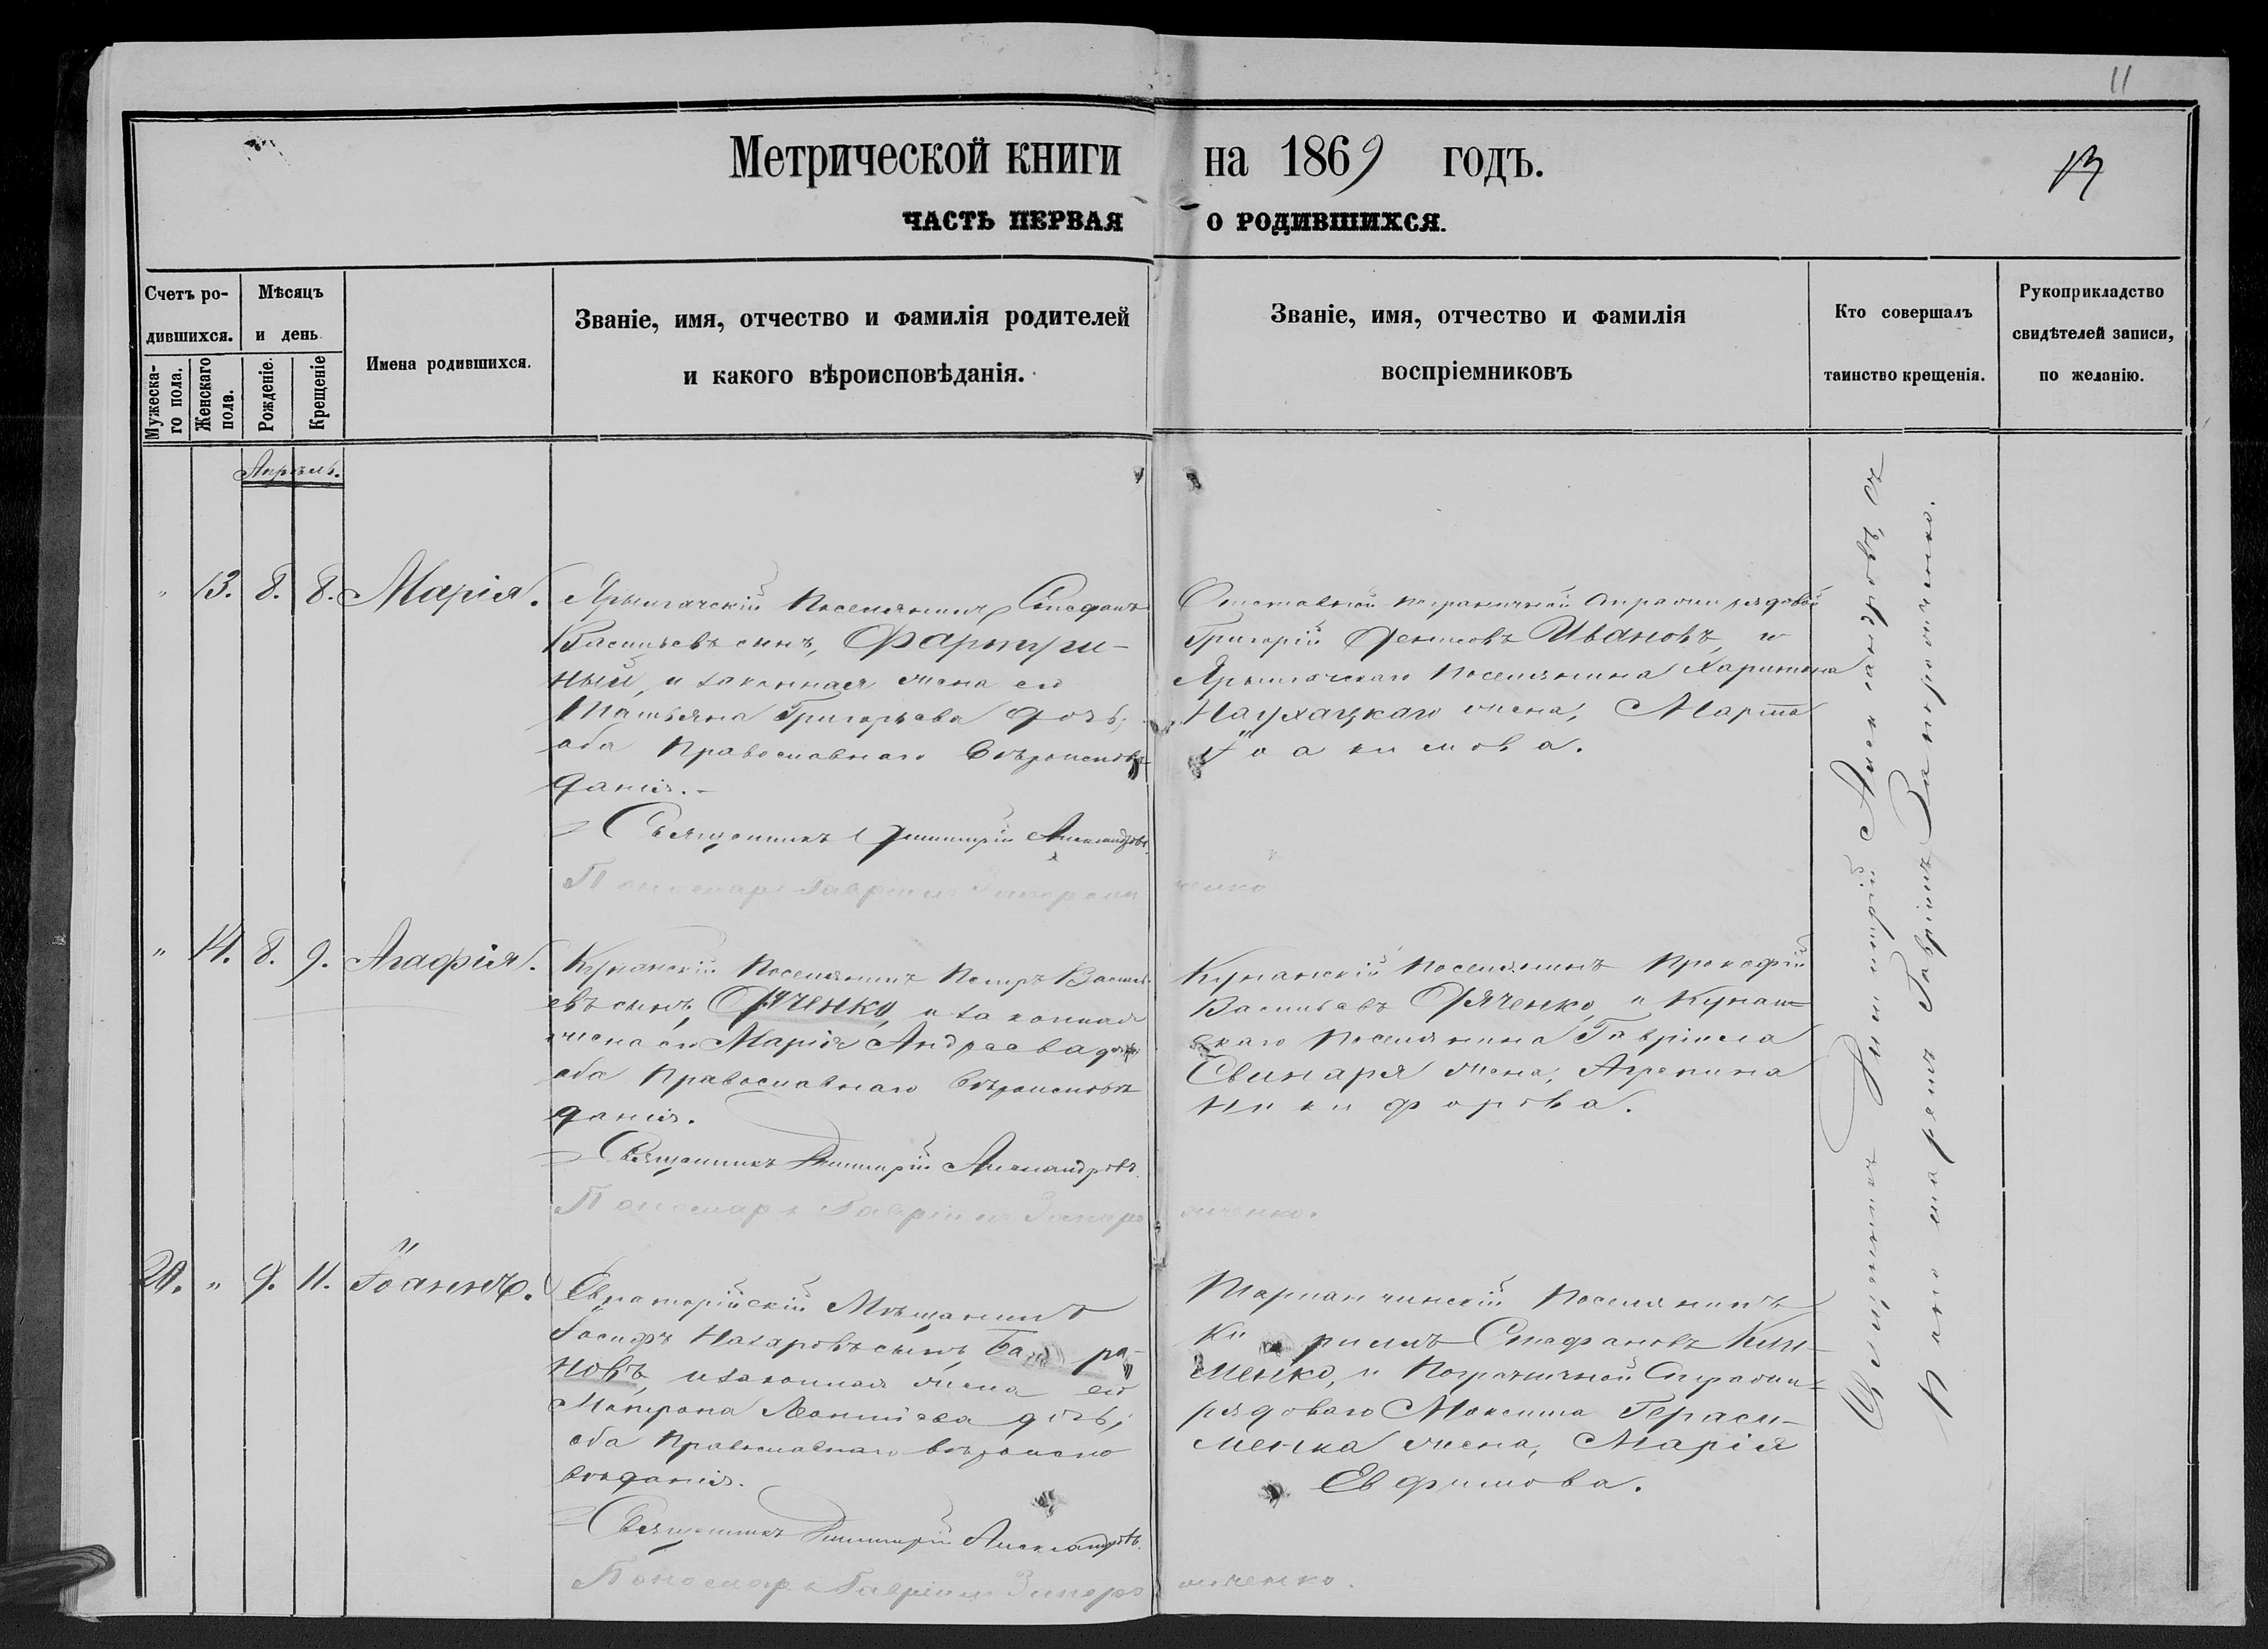 11
Метрической книги на 1869 годъ.
13
ЧАСТЬ ПЕРВАЯ О РОДИВШИХСЯ.
Счетъ ро-
дившихся.
Мужеска-
го пола.
Женскаго
пола.
Мѣсяцъ
и день
Рожденіе.
Крещеніе
Имена родившихся.
Званіе, имя, отчество и фамилія родителей
и какого вѣроисповѣданія.
Званіе, имя, отчество и фамилія
воспріемниковъ
Кто совершалъ
таинство крещенія.
Рукоприкладство
свидѣтелей записи,
по желанію.
Апрѣль.
" 13. 8. 8. Марія.
Ярылгачскій Поселянинъ, Стефанъ
Васильевъ сынъ, Фартуш-
ный, и законная жена его
Татьяна Григорьева дочь,
оба Православнаго вѣроисповѣ-
данія.-
Священникъ Димитрій Александровъ.
Пономарь Гавріилъ Запорожченко
Отставной пограничной Стражи рядовой
Григорій Денисовъ Ивановъ, и
Ярылгачскаго Поселянина Харитона
жена, Марѳа
Іоакимова.
" 14. 8. 9. Агафія.
Кунанскій Поселянинъ Петръ Василь-
евъ сынъ, Дяченко, и законная
жена его Марія Андреева дочь
оба Православнаго вѣроисповѣ
данія.
Священникъ Димитрій Александровъ.
Пономарь Гавріилъ Запорожченко.
Кунанскій Поселянинъ Прокофій
Васильевъ Дяченко, и Кунан-
скаго Поселянина Гавріила
Свинаря жена, Агрепина
Никифорова.
20. " 9. 11. Іоаннъ.
Евпаторійскій Мѣщанинъ
Іосифъ Назаровъ сынъ, Ба ра-
новъ, и законная жена его
Матрона Леонтіева дочь,
оба Православнаго вѣроиспо
вѣданія.
Священникъ Димитрій Александровъ.
Пономарь Гавріилъ Запорожченко.
Тарпанчинскій Поселянинъ
Ки рилъ Стефановъ Кли-
менко, и Пограничной Стражи
рядоваго Максима Гераси-
менка жена, Марія
Евфимова.
Священникъ Димитрій Александровъ, съ
Пономаремъ Гавріиломъ Запорожченко.